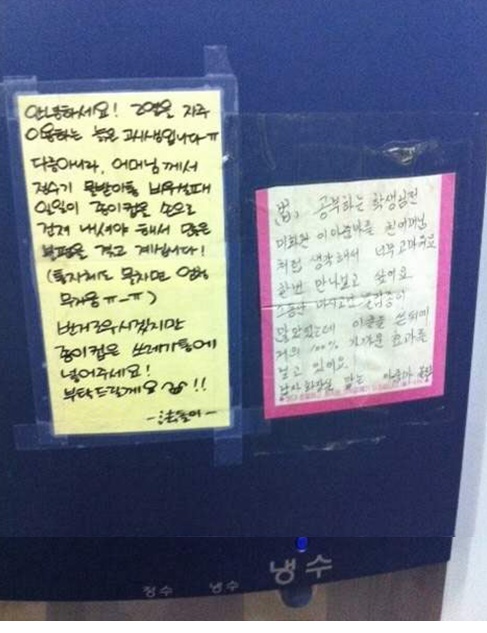 안녕하세요! 2열을 자주
이용하는 늙은 고시생입니다ㅠ
다름아니라, 어머님께서
정수기 물받이통 비우실때
일일이 종이컵을 손으로
건져 내셔야 해서 많은
불편을 겪고 계십니다!
(휴지도 뭉치면
무거움 ㅠ-ㅠ)
번거로우시겠지만
종이컵은 쓰레기통에
넣어주세요!
부탁드릴게요 !!
法, 공부하는 학생님전
미화원 이 아줌마를 친어머님
처럼 생각해줘서 너무 고마워요
한번 만나보고 싶어요.
말랐었는데 이글을 쓴뒤에
거의 100% 가까운 효과를
보고 있어요.
남아화장실 맡는 아줌마
정수 냉수 냉수